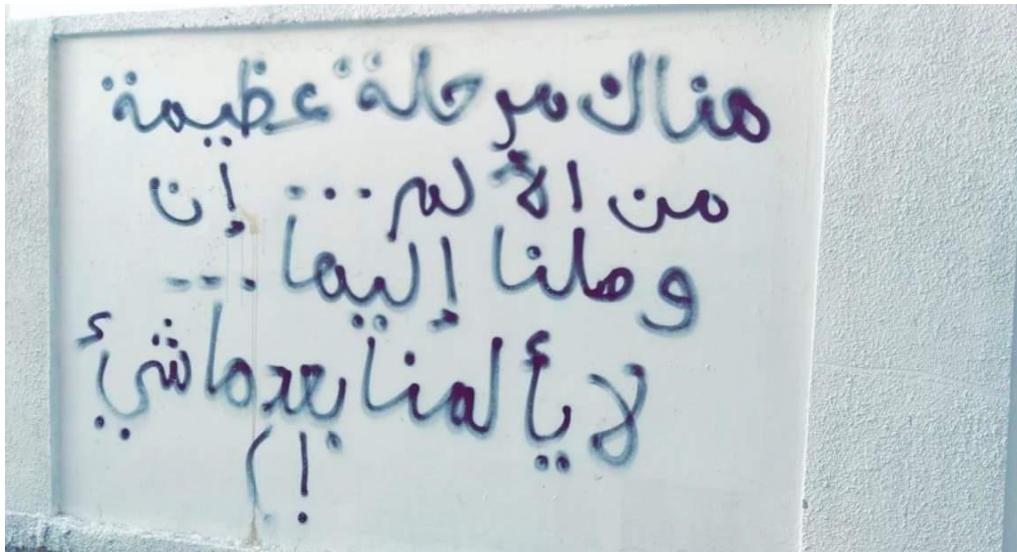 هناك مرحلة عظيمة
من الألم ... إن
وصلنا إليها ...
لا يألمنا بعدها شيئ
!)